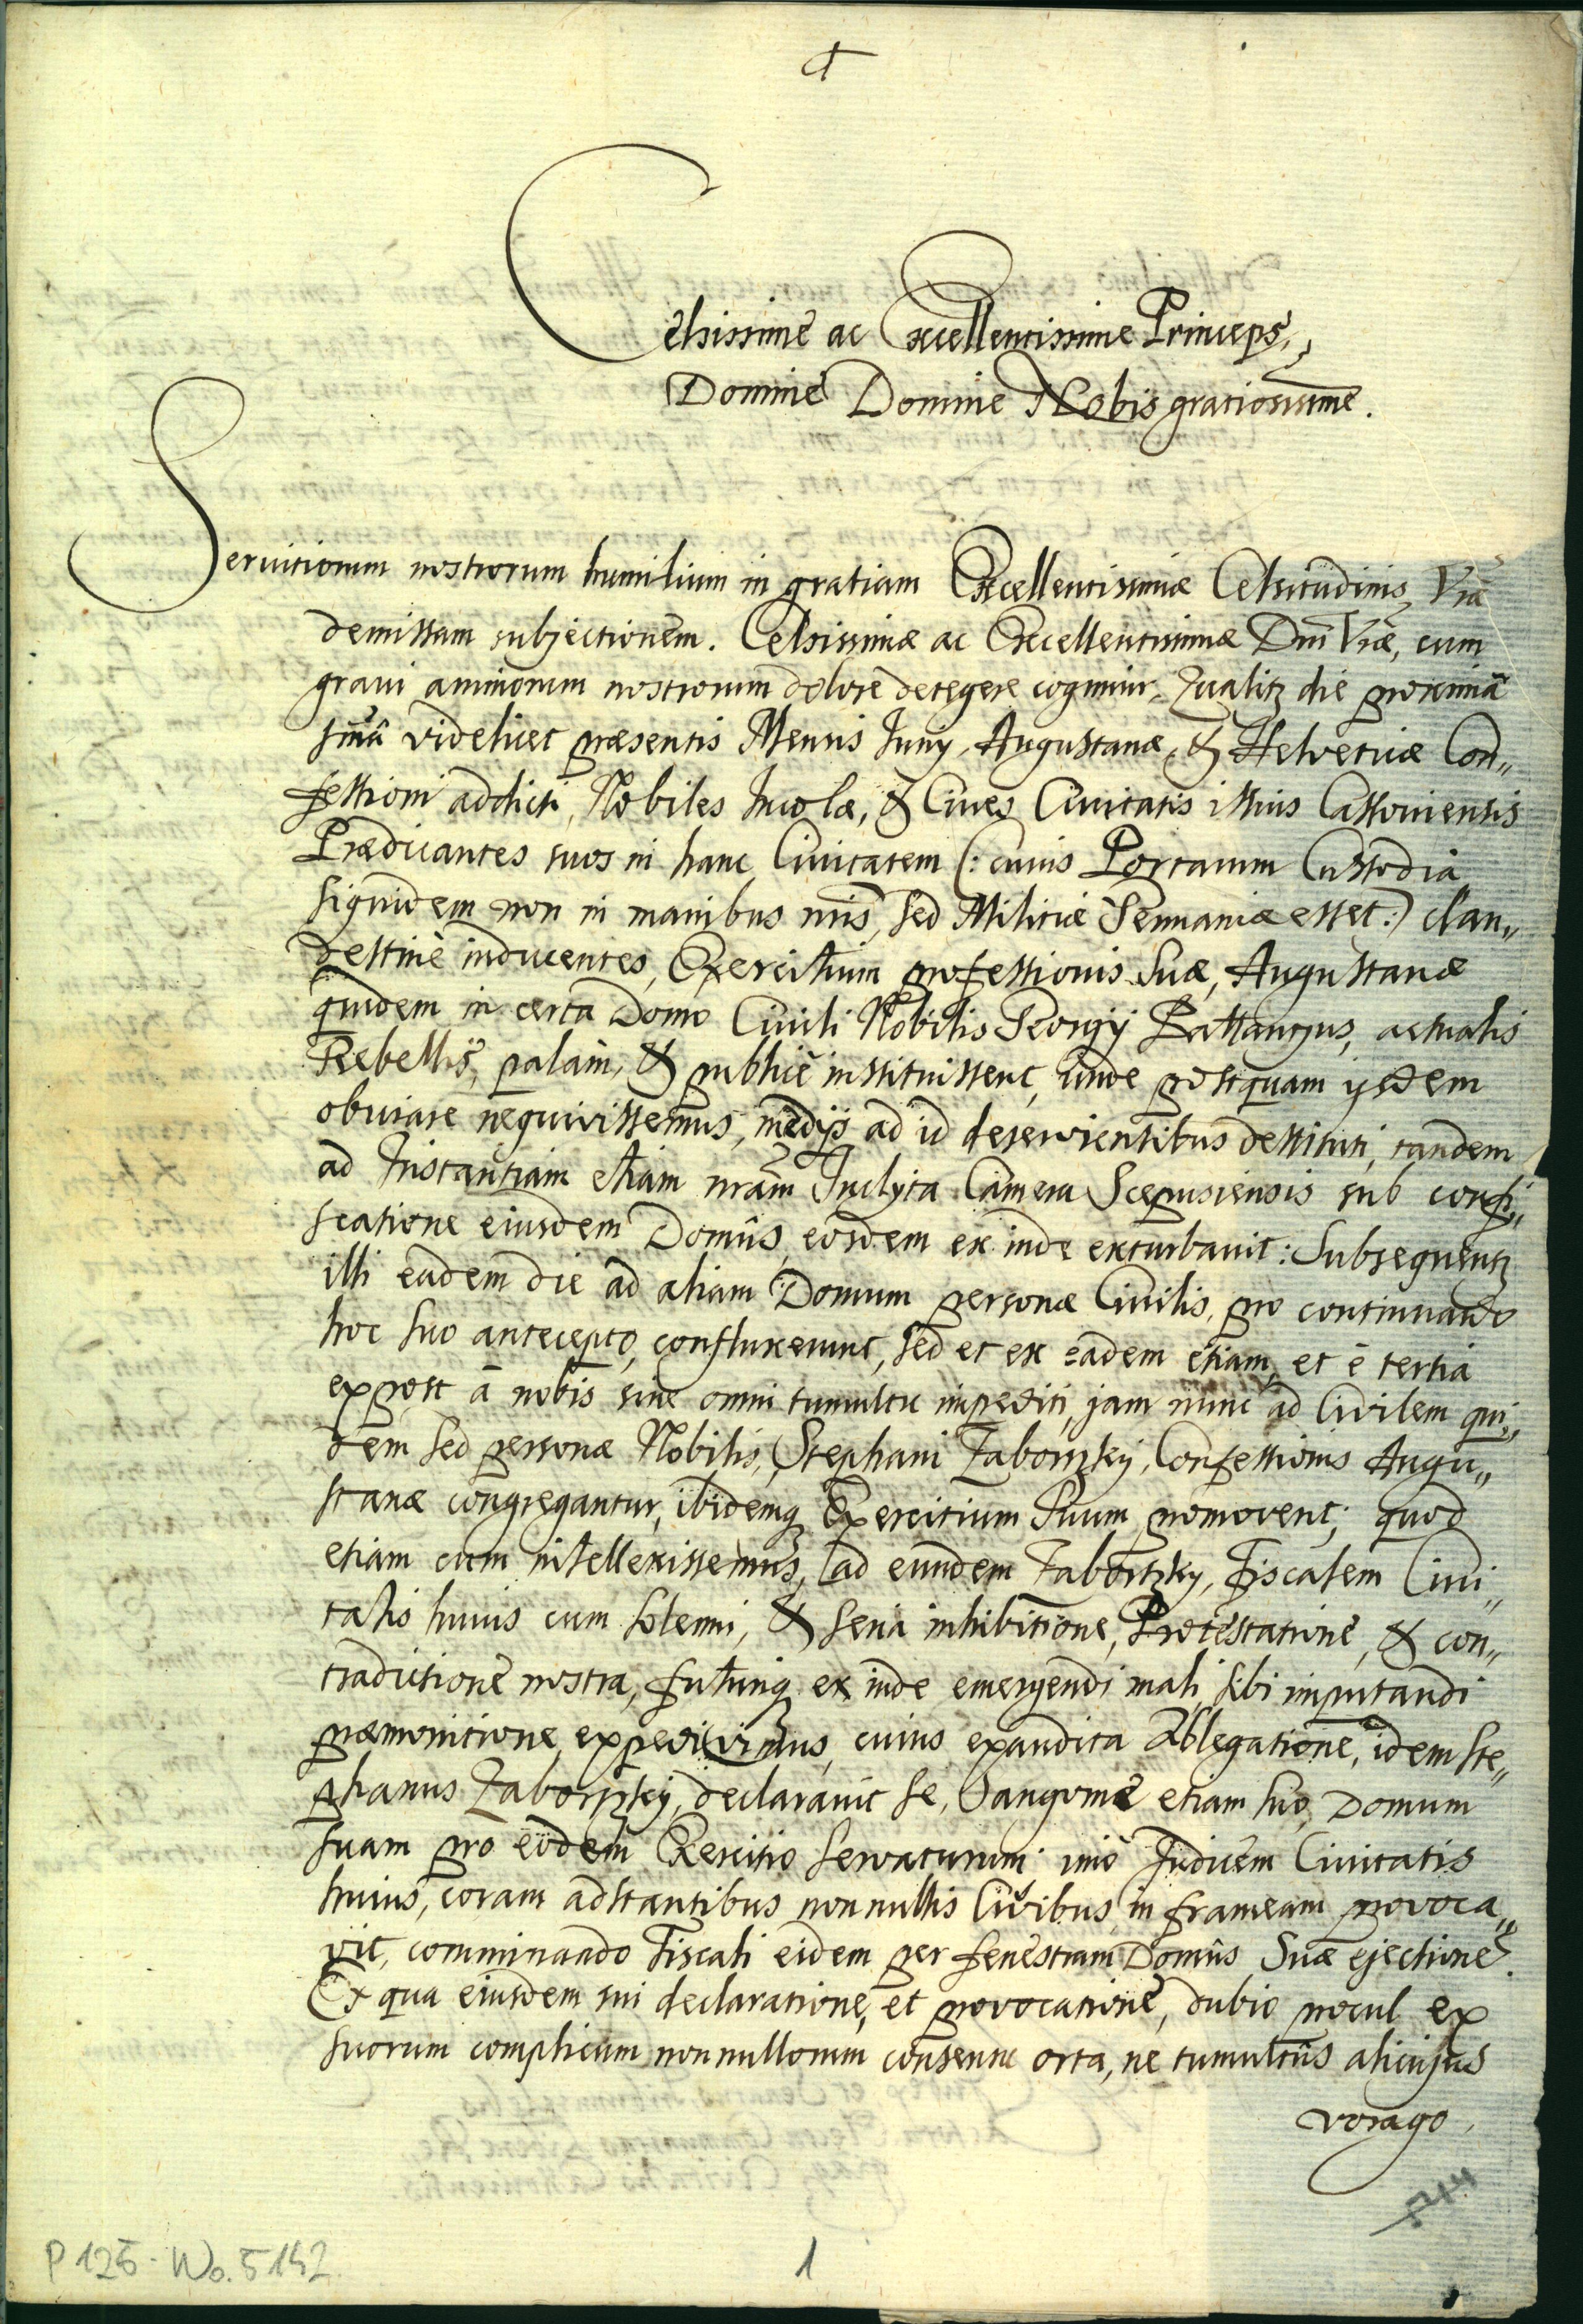 Celsissime ac Excellentissime Princeps,
Domine Domine Nobis gratiosissime.
Servitiorum nostrorum humilium in gratiam Excellentissimæ Celsitudinis Vrã
demissam subjectionem. Celsissimæ ac Excellentissimæ Dnĩ Vrãe, cum
gravi animorum nostrorum dolore detegere cogimur, Qualitz die proximã
videlicet præsentis Mensis Juny, Augustanæ, & Helveticæ Con„
fessioni addicti, Nobiles Incolæ, & Cives Civitatis istius Cassoviensis
Prædicantes suos in hanc Civitatem (: cuius Portarum Custodia
siquidem non in manibus nris, sed Militiæ Germaniæ esset :) clan„
destine inducentes, Exercitium professionis Suæ, Augustanæ
quidem in certa Domo Civili Nobilis Georgÿ actualis
Rebellis, palam, & publicè instituissent, unde postquam ysdem
obviare nequivissemus, medÿs ad id deservientibus destituti, tandem
ad Instantiam etiam nrãm Inclyta Camera Scepusiensis sub confi„
scatione eiusdem Domûs, eosdem ex inde exturbavit: Subsequentz
illi eadem die ad aliam Domum personæ Civilis, pro continuando
hoc suo antecepto, confluxerunt, sed et ex eadem etiam, et è tertia
expost à nobis sine omni tumultu impediti, jam nunc ad Civilem qui„
dem sed personæ Nobilis, Stephani Zaborszky, Confessionis Augu„
stanæ congregantur, ibidemq Exercitium Suum promovent; quod
etiam cum intellexissemus, ad eundem Zaborszky, Fiscalem Civi„
tatis huius cum solenni, & seria inhibitione, Protestatione, & con„
tradictione nostra, futuriq ex inde emergendi mali, sibi imputandi
præmonitione expedivimus, cuius exaudita Ablegatione, idem Ste„
phanus Zaborszky, declaravit se, Sangvine etiam suo, Domum
suam pro eodem Exercitio servaturum, imò Judicem Civitatis
huius, coram adstantibus nonnullis Civibus in frameam provoca„
vit, comminando Fiscali eidem per fenestram Domûs Suæ ejectionẽ.
Ex qua eiusdem sui declaratione, et provocatione, dubio procul ex
suorum complicum nonnullorum consensu orta, ne tumultûs alicujus
vorago
P 125 - No. 5142
1